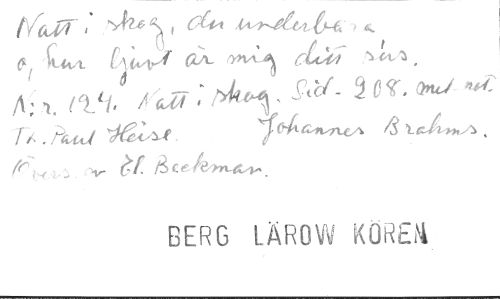 Natt i skog, du underbara
o, hur ljuvt är mig ditt sus.
N:r. 124. Natt i skog. Sid. 208. met not.
Th. Paul Heise. Johannes Brahms.
Övers. av El. Backman.
BERG LÄROW KÖREN